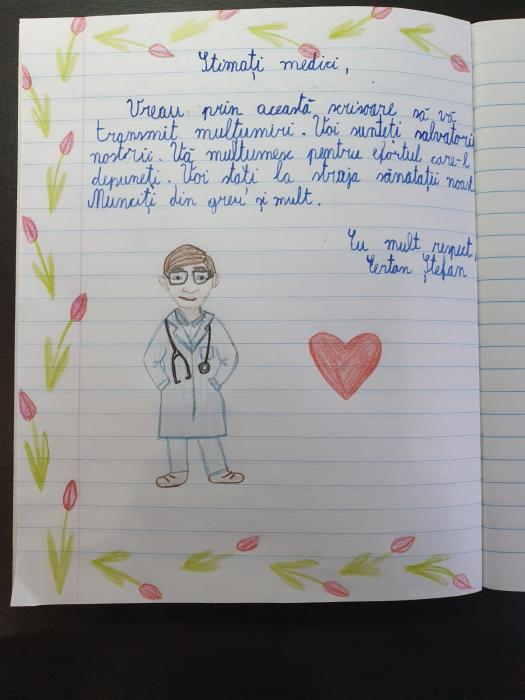 Stimați medici,
Vreau prin această scrisoare să vă
transmit mulțumiri. Voi sunteți salvatorii
noștrii. Vă mulțumesc pentru efortul care-l
depuneți. Voi stați la straja sănatații noast
Munciți din greu și mult.
Cu mult respect,
Ștefan